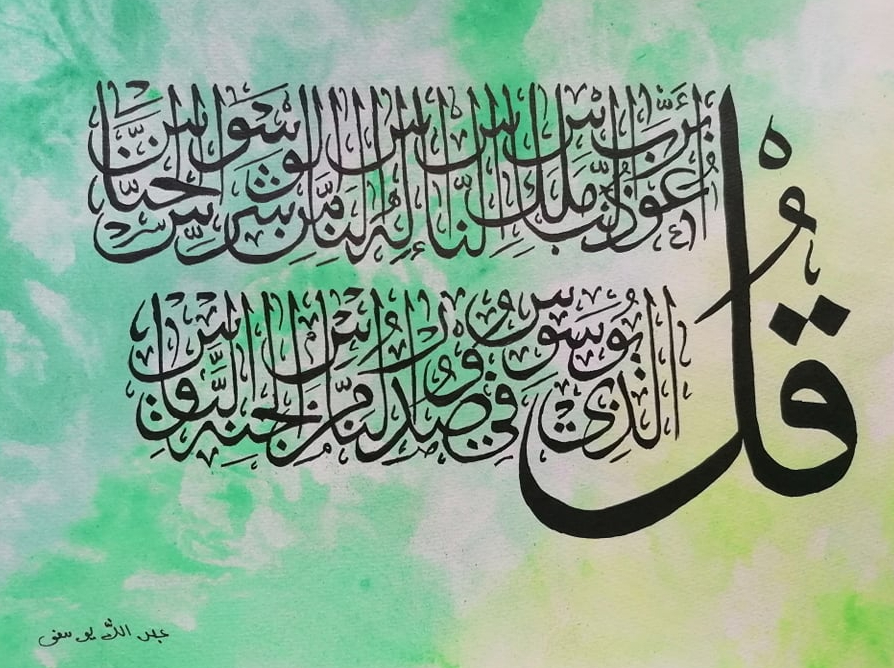 قُلْ أَعُوذُ بِرَبِّ النَّاسِ مَلِكِ النَّاسِ إِلَٰهِ النَّاسِ مِن شَرِّ الْوَسْوَاسِ الْخَنَّاسِ
الَّذِي يُوَسْوِسُ فِي صُدُورِ النَّاسِ مِنَ الْجِنَّةِ وَالنَّاسِ
عبد الله یوسفی